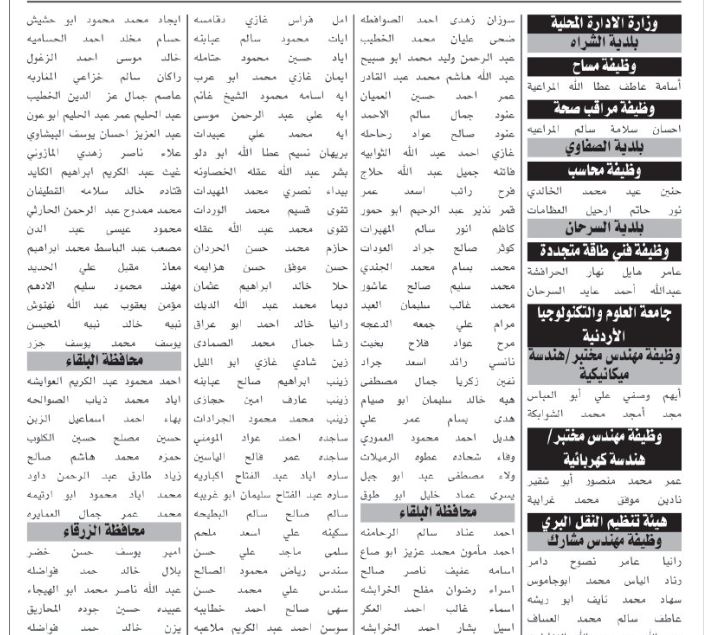 وزارة الادارة المحلية
بلدية الشراه
وظيفة مساح
أسامة عاطف عطا الله المراعية
وظيفة مراقب صحة
احسان سلامة سالم المراعيه
بلدية الصفاوي
وظيفة محاسب
حنين عيد محمد الخالدي
نور حاتم ارحيل العظامات
بلدية السرحان
وظيفة فني طاقة متجددة
عامر مايل نهار الحرافشة
عبدالله أحمد عايد السرحان
جامعة العلوم والتكنولوجيا
الأردنية
وظيفة مهندس مختبر/هندسة
ميكانيكية
أيهم وصفي علي أبو العباس
مجد أمجد محمد الشوابكة
وظيفة مهندس مختبر/
هندسة كهربائية
عمر محمد منصور أبو شقير
نادين موفق محمد غرايبة
هيئة تنظيم النقل البري
وظيفة مهندس مشارك
رانيا عامر نصوح دامر
رناد الياس محمد ابوجاموس
سهاد محمد نايف ابو ريشه
عاطف سالم محمد العساف
سوزان زهدي احمد الصوافطه
ضحى عليان محمد الخطيب
عبد الرحمن وليد محمد ابو صبيح
عبد الله هاشم محمد عبد القادر
عمر احمد حسين العميان
عنود جمال سالم الاحمد
عنود صالح عواد رحاحله
غازي احمد عبد الله الثوابيه
فاتنه جميل عبد الله حلاج
فرح راتب اسعد عمر
قمر نذير عبد الرحيم ابو حمور
كاظم انور سالم المهيرات
كوثر صالح جراد العودات
محمد بسام محمد الجندي
محمد سليم صالح عاشور
محمد غالب سليمان العبد
مرام علي جمعه الدعجه
مرح عواد فلاح بخيت
نانسي رائد اسعد جراد
نفين زكريا جمال مصطفى
هبه خالد سليمان ابو صيام
هدى بسام عمر علي
هديل احمد محمود العموري
وفاء شحاده عطوه الرميلات
ولاء مصطفى عبد ابو جبل
يسرى عماد خليل ابو طوق
محافظة البلقاء
احمد عناد سالم الرحامنه
احمد مأمون محمد عزيز ابو صاع
اسامه عفيف ناصر صالح
اسراء رضوان مفلح الخرابشه
اسماء غالب احمد العكر
اسيل بشار احمد الخرابشه
امل فراس غازي دقامسه
ايات محمود سالم عبابنه
اياد حسين محمود حتامله
ايمان غازي محمد ابو عرب
ايه اسامه محمود الشيخ غانم
ايه علي عبد الرحمن موسى
ايه محمد علي عبيدات
بريهان نسيم عطا الله ابو دلو
بشر عبد الله عقله الخصاونه
بيداء نصري محمد المهيدات
تقوى قسيم محمد الوردات
تقوى محمد عبد الله عقله
حازم محمد حسن الحردان
حسن موفق حسن هزايمه
حلا خالد ابراهيم عثمان
ديما محمد عبد الله الديك
رانيا خالد احمد ابو عراق
رشا جمال محمد الصمادي
زين شادي غازي ابو الليل
زينب ابراهيم صالح عبابنه
زينب عارف امين حجازي
زينب محمد محمود الجرادات
ساجده احمد عواد المومني
ساجده عمر فالح الياسين
ساره اياد عبد الفتاح اكباريه
ساره عبد الفتاح سليمان ابو غريبه
سالم صالح سالم البطيحه
سكينه علي اسعد ملحم
سلمى ماجد علي حسن
سندس رياض محمود الصالح
سندس علي محمد حسن
سهى صالح احمد خطايبه
سوسن احمد عبد الكريم ملاعبه
ايجاد محمد محمود ابو حشيش
حسام مخلد احمد الحساميه
خالد موسى احمد الزغول
راكان سالم خزاعي المغاربه
عاصم جمال عز الدين الخطيب
عبد الحليم عمر عبد الحليم ابو عون
عبد العزيز احسان يوسف البيشاوي
علاء ناصر زهدي المازوني
غيث عبد الكريم ابراهيم الكايد
قتاده خالد سلامه القطيفان
محمد ممدوح عبد الرحمن الحارثي
محمود عيسى عبد الدن
مصعب عبد الباسط محمد ابراهيم
معاذ مقبل علي الحديد
مهند محمود سليم الادهم
مؤمن يعقوب عبد الله نهتوش
نبيه خالد نبيه المحيسن
يوسف محمد يوسف جزر
محافظة البلقاء
احمد محمود عبد الكريم العوايشه
اياد محمد ذياب الصوالحه
بهاء احمد اسماعيل الزبن
حسين مصلح حسين الكلوب
حمزه محمد هاشم صالح
زياد طارق عبد الرحمن داود
محمد اياد محمود ابو ارتيمه
محمد عمر جمال العمايره
محافظة الزرقاء
امير يوسف حسن خضر
بلال خالد حمد فواضله
عبد الله ناصر محمد ابو الهيجاء
عبيده حسين جوده المحاريق
يزن خالد حمد فواضله